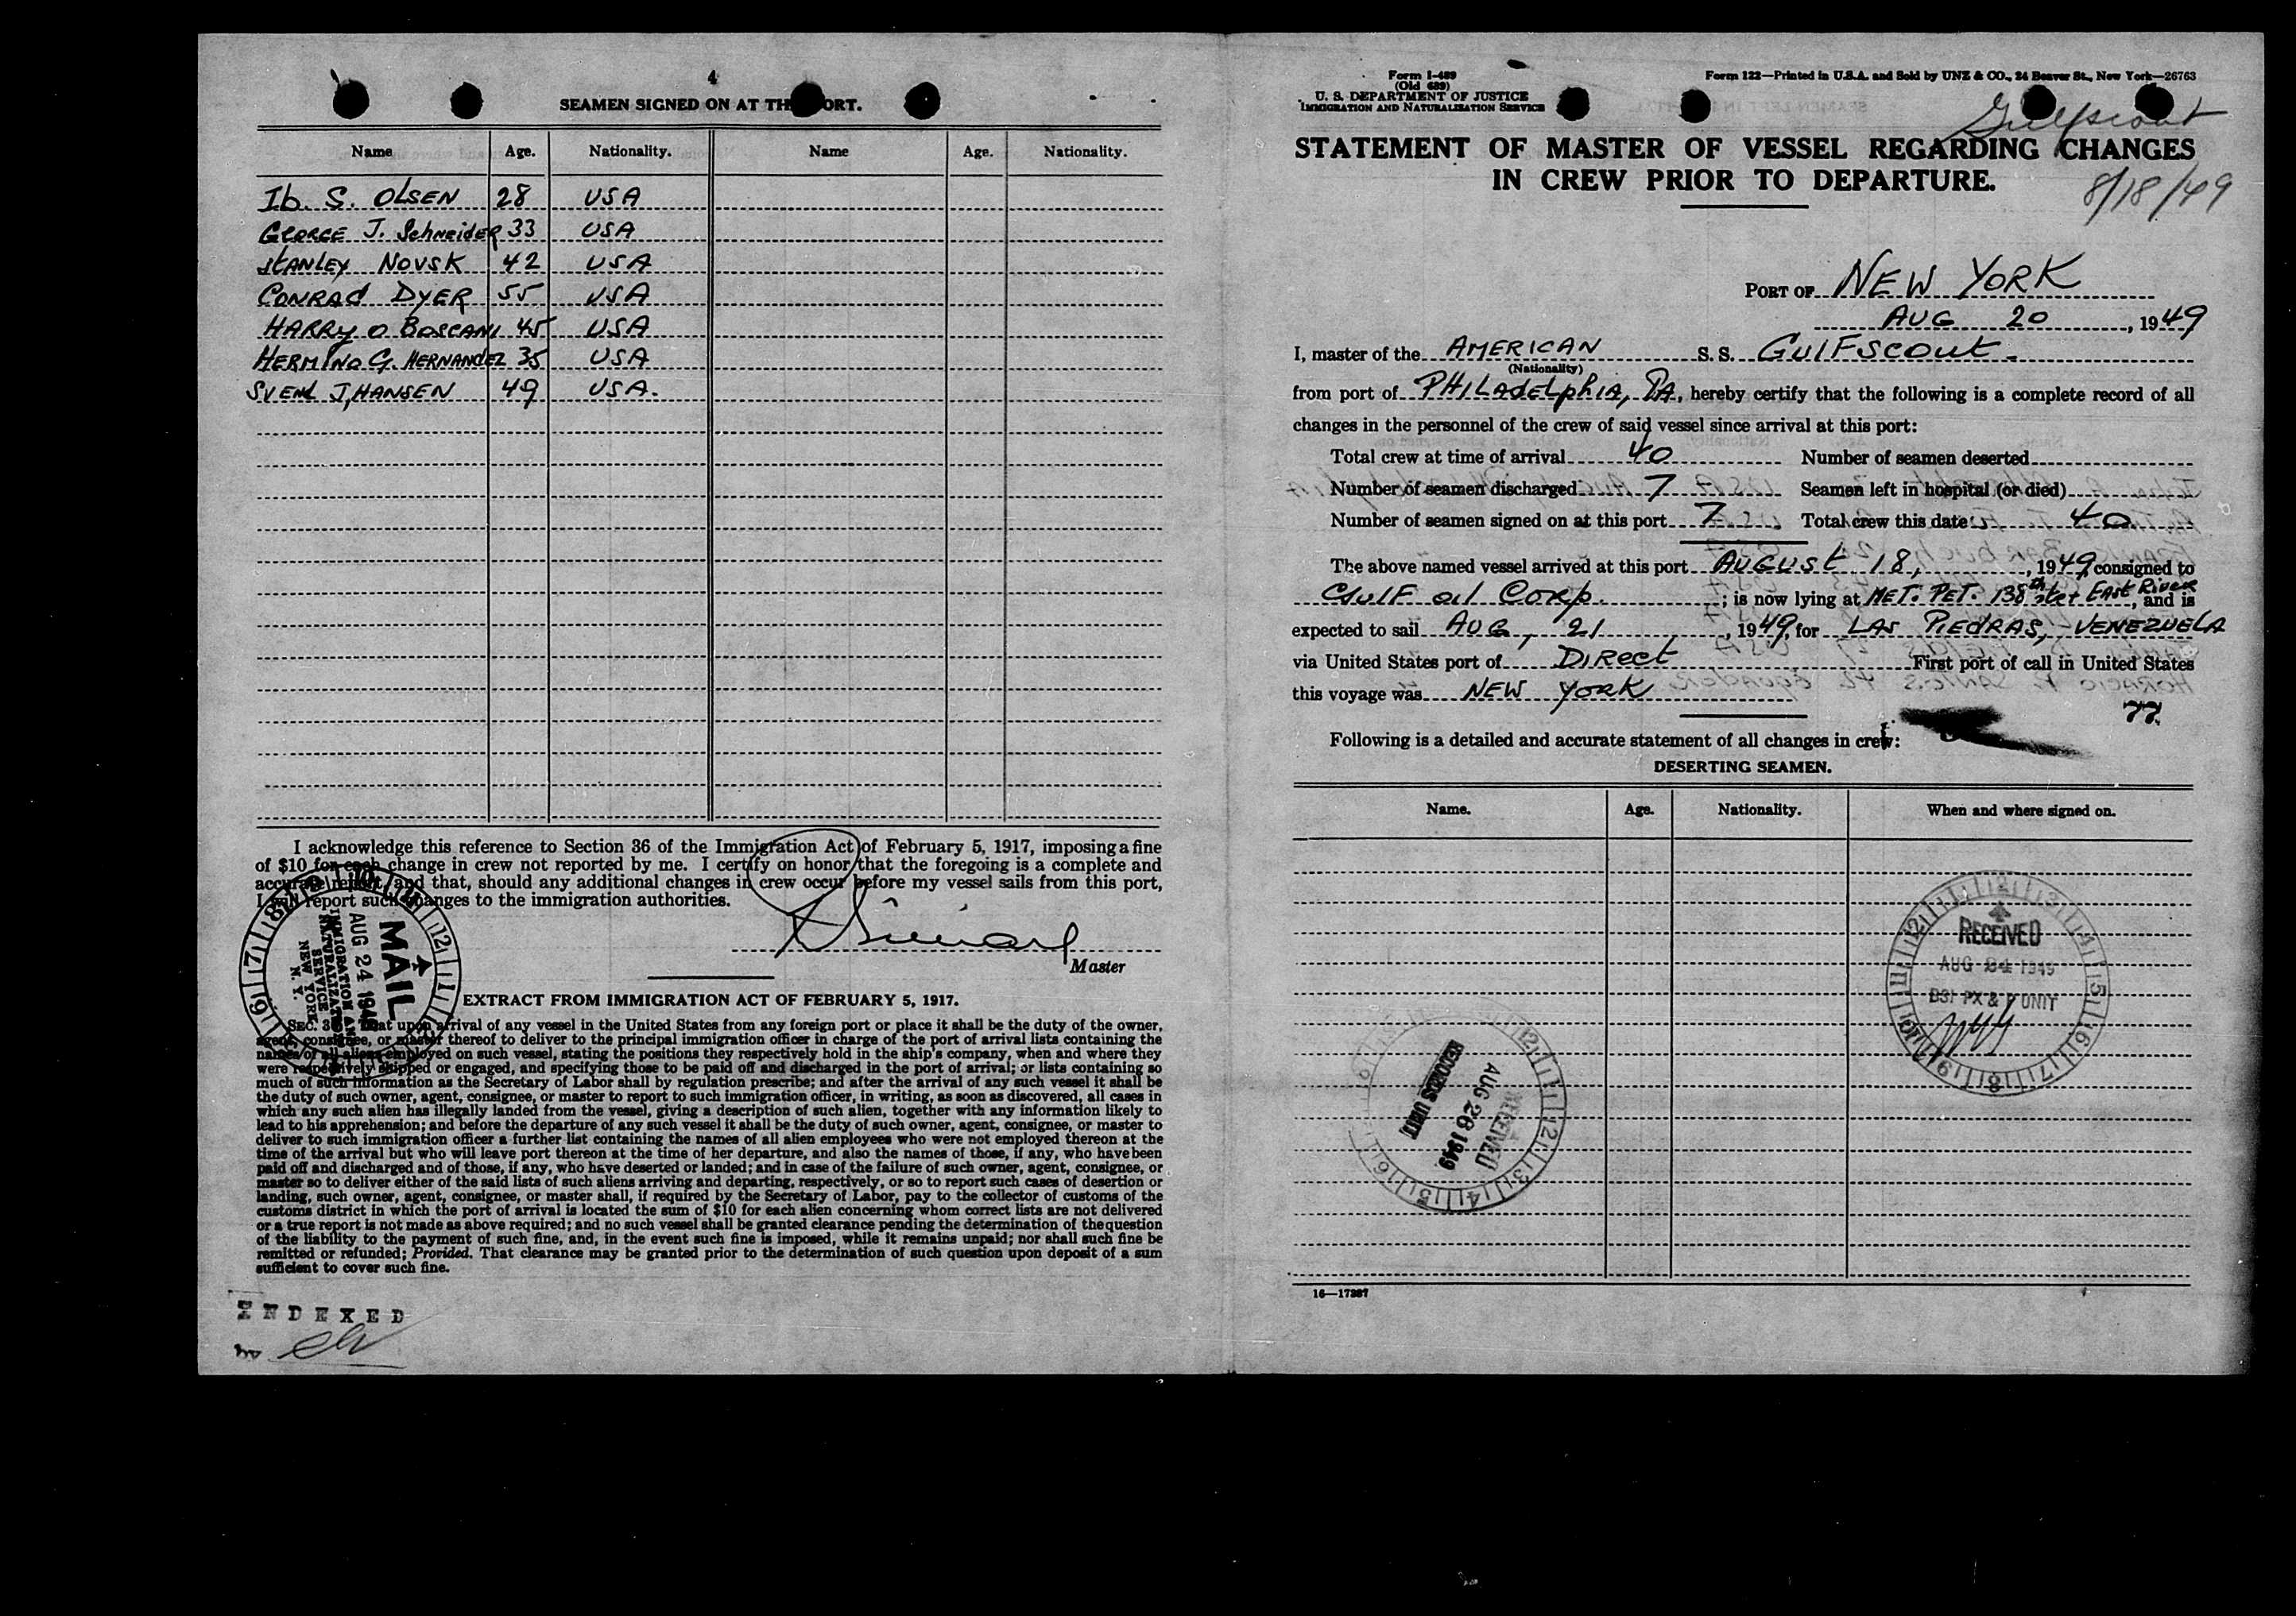 4
SEAMEN SIGNED ON AT THIS PORT.
Name Age. Nationality. Name Age. Nationality.
Ib. S. OLSEN 28 USA
GEORGE J. SchNeidER 33 USA
STANLEY NOVSK 42 USA
CONRAd DYER 55 USA
HARRY O BOSCANI 45 USA
HERMINO G. HERNANDEZ 35 USA
SVEND J, HANSEN 49 USA.
I acknowledge this reference to Section 36 of the Immigration Act of February 5, 1917, imposing a fine
of $10 for each change in crew not reported by me. I certify on honor that the foregoing is a complete and
accurate report, and that, should any additional changes in crew occur before my vessel sails from this port,
I will report such changes to the immigration authorities.
Master
MAIL
AUG 24 1949
IMMIGRATION AND
NATURALIZATION
SERVICE
NEW YORK
N. Y.
EXTRACT FROM IMMIGRATION ACT OF FEBRUARY 5, 1917.
SEC. 36. That upon arrival of any vessel in the United States from any foreign port or place it shall be the duty of the owner,
agent, consignee, or master thereof to deliver to the principal immigration officer in charge of the port of arrival lists containing the
names of all aliens employed on such vessel, stating the positions they respectively hold in the ship's company, when and where they
were respectively shipped or engaged, and specifying those to be paid off and discharged in the port of arrival; or lists containing so
much of such information as the Secretary of Labor shall by regulation prescribe; and after the arrival of any such vessel it shall be
the duty of such owner, agent, consignee, or master to report to such immigration officer, in writing, as soon as discovered, all cases in
which any such alien has illegally landed from the vessel, giving a description of such alien, together with any information likely to
lead to his apprehension; and before the departure of any such vessel it shall be the duty of such owner, agent, consignee, or master to
deliver to such immigration officer a further list containing the names of all alien employees who were not employed thereon at the
time of the arrival but who will leave port thereon at the time of her departure, and also the names of those, if any, who have been
paid off and discharged and of those, if any, who have deserted or landed; and in case of the failure of such owner, agent, consignee, or
master so to deliver either of the said lists of such aliens arriving and departing, respectively, or so to report such cases of desertion or
landing, such owner, agent, consignee, or master shall, if required by the Secretary of Labor, pay to the collector of customs of the
customs district in which the port of arrival is located the sum of $10 for each alien concerning whom correct lists are not delivered
or a true report is not made as above required; and no such vessel shall be granted clearance pending the determination of the question
of the liability to the payment of such fine, and, in the event such fine is imposed, while it remains unpaid; nor shall such fine be
remitted or refunded; Provided. That clearance may be granted prior to the determination of such question upon deposit of a sum
sufficient to cover such fine.
INDEXED
Form I-489
(Old 689)
U. S. DEPARTMENT OF JUSTICE
IMMIGRATION AND NATURALIZATION SERVICE
Form 122—Printed in U.S.A. and Sold by UNZ & CO., 24 Beaver St., New York—26763
Gulfscout
STATEMENT OF MASTER OF VESSEL REGARDING CHANGES
IN CREW PRIOR TO DEPARTURE.
8/18/49
PORT OF NEW YORK
AUG 20, 1949
I, master of the AMERICAN S. S. GulFscout.
(Nationality)
from port of PHILADElphIA, PA, hereby certify that the following is a complete record of all
changes in the personnel of the crew of said vessel since arrival at this port:
Total crew at time of arrival 40 Number of seamen deserted
Number of seamen discharged 7 Seamen left in hospital (or died)
Number of seamen signed on at this port 7 Total crew this date 40
The above named vessel arrived at this port AUGUST 18, , 1949, consigned to
GulF oil Corp. ; is now lying at MET. PET. 138th Stet EAST RIVER, and is
expected to sail AUG, 21, 1949, for LAS PIEDRAS, VENEZUELA
via United States port of DIRect First port of call in United States
this voyage was NEW YORK
77
Following is a detailed and accurate statement of all changes in crew:
DESERTING SEAMEN.
Name. Age. Nationality. When and where signed on.
RECEIVED
AUG 24 1949
RECEIVED
AUG 26 1949
RECORDS UNIT
16—17287